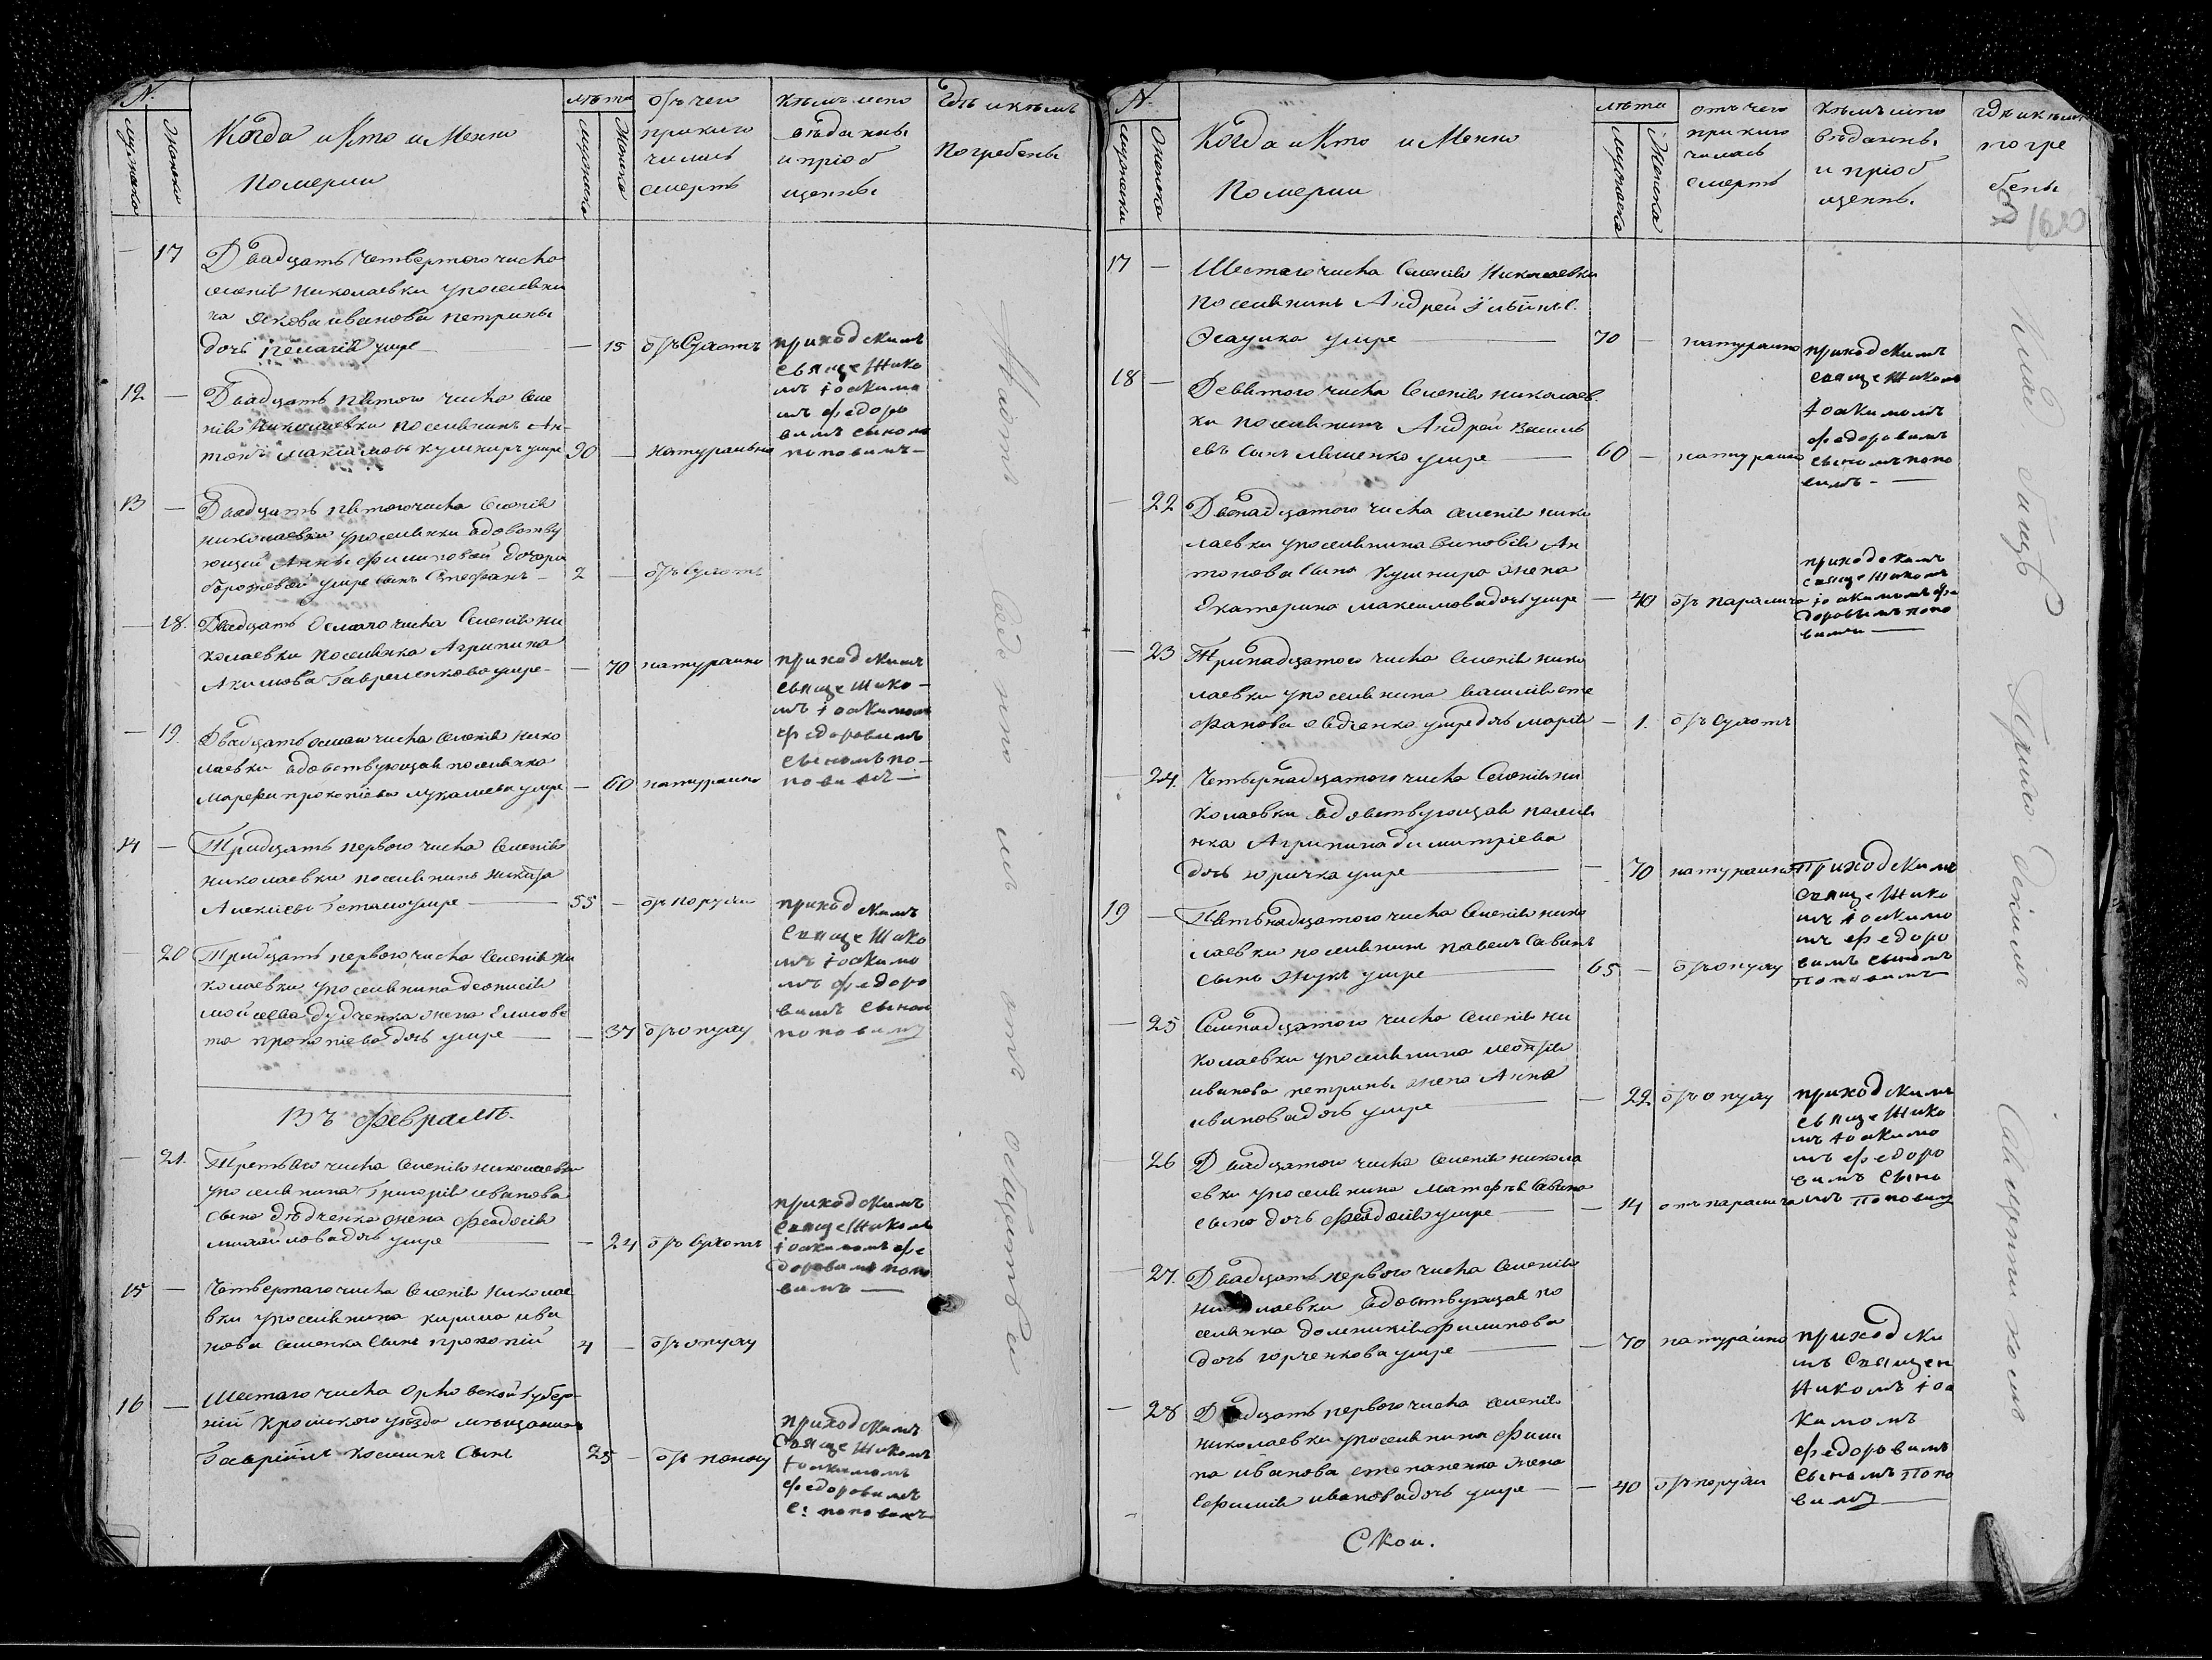 №
мужеска
женска
Когда и Кто иМенно
Померли
лѣта
мужеска
Женска
отъ чего
приклю
чилась
смерть
кѣмъ испо
вѣданы
и пріоб
щенны
Гдѣ и кѣмъ
Погребены
17 Двадцать Четвертого числа
селенія Николаевки упоселяни
на Якова иванова петрины
дочь умре 15 отъ Сухотъ
приходскимъ
священнико
мъ Іоакимо
мъ федоро
вимъ сыномъ
поповимъ
12 Двадцать пятого числа Селе
нія Николаевки поселянинъ Ан-
тонъ максимовъ кушниръ умре 90 натурально
13 Двадцать пятого числа Селенія
николаевки упоселянки вдовству
ющей Анны филиповой дочери
умре сынъ Стефанъ 2 отъ Сухотъ
18. Двадцать Осмого числа Селенія Ни
колаевки поселянка Агрипина
Акимова Гавриленкова умре 70 натурално
приходскимъ
священнико
мъ Іоакимомъ
федоровимъ
сыномъ по-
повимъ
19. Двадцать осмого числа Селенія Нико
лаевки вдовствующая поселянка
Марфа прокопіева лукашева умре 60 натурално
14 Тридцать первого числа Селенія
николаевки поселянинъ никита
Алексіевъ Гетало умре 55 отъ
приходскимъ
священнико
мъ Іоакимо
мъ федоро
вимъ сыном
поповимъ
20 Тридцать первого числа Селенія Ни
колаевки упоселянина деонисія
мойсеева дудченка жена Елисаве
та прокопіева дочь умре 37 отъ опуху
Въ февралѣ.
21. Третьяго числа Селенія николаевки
упоселянина Григорія иванова
сына дѣдченка жена Феодосія
михайлова дочь умре 24 отъ Сухотъ
приходскимъ
священникомъ
Іоакимомъ фе
доровимъ попо
вимъ
15 Четвертаго числа Селенія Николае
вки упоселянина кирила ива
нова семенка сынъ прокопій 4 отъ опуху
16 Шестаго числа Орловской Губер-
ніи Кромского уѣзда мѣщанинъ
Гавріилъ Козминъ Сынъ 25 отъ поносу
приходскимъ
священникомъ
Іоакимомъ
федоровимъ
с: поповимъ
№
мужеска
Женска
Когда и Кто иМенно
Померли
лѣта
мужеска
Женска
отъ чего
приклю
чилась
смерть
кѣмъ испо
вѣданны
и пріоб
щенны.
гдѣ и кѣмъ
погре
бены
17 Шестаго числа Селенія Николаевки
поселянинъ Андрей
Осауленко умре 70 натурално
приходскимъ
священникомъ
Іоакимомъ
федоровимъ
сыномъ попо
вимъ
18 Девятого числа Селенія николаев
ки поселянинъ Андрей василь
евъ Сынъ умре 60 натурално
22 Двонадцатого числа селенія нико
лаевки упоселянина Зиновія Ан
тонова Сына Кушнира жена
Екатерина максимова дочь умре 40 отъ паралича
приходскимъ
священникомъ
Іоакимомъ фе
доровымъ попо
вимъ
23 Тринадцатого числа Селенія нико
лаевки упоселянина василія сте
фанова овдіенка умре дочь марія 1. отъ Сухотъ
24. Четырнадцатого числа Селенія ни
колаевки вдовствующая поселя
нка Агрипина димитріева
дочь юричка умре 70 натурално
приходскимъ
священнико
мъ Іоакимо
мъ федоро
вимъ сыномъ
поповимъ
19 Пятьнадцатого числа Селенія нико
лаевки поселянинъ павелъ Савинъ
сынъ жукъ умре 65 отъ опуху
25 Семнадцатого числа Селенія ни
колаевки упоселянина леонтія
иванова петрины жена Анна
иванова дочь умре 22 отъ опуху
приходскимъ
священнико
мъ Іоакимо
мъ федоро
вимъ Сыно
мъ поповимъ
26 Двадцатого числа Селенія никола
евки упоселянина Матфѣя Савина
сына дочь феодосія умре 14 отъ паралича
27. Двадцать первого числа Селенія
николаевки вдовствующая по
селянка доменикія филипова
дочь горченкова умре 70 натурално
приходски
мъ Священ
никомъ Іоа
кимомъ
федоровимъ
Сыномъ Попо
вимъ
28 Двадцать первого числа селенія
николаевки упоселянина фили
па иванова степаненка жена
Ефимія иванова дочь умре 40 отъ
Скои.